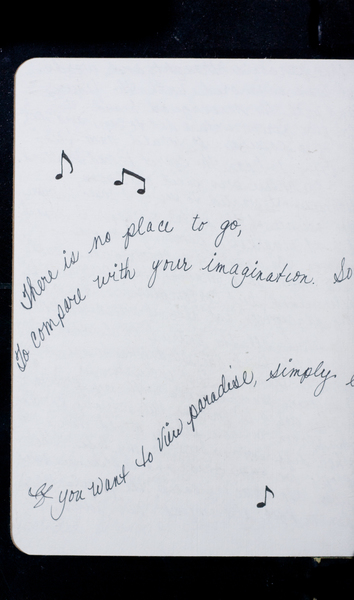 There is no place to go,
To compare with your imagination. So
If you want to view paradise, simply